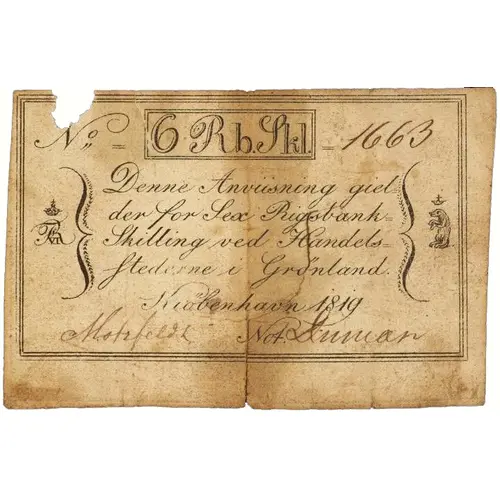 No = 6 R.b. Skl. = 1663
Denne Anviisning giel-
der for Sex Rigsbank-
Skilling ved Handels-
stederne i Grönland.
Kiøbenhavn 1819
Motzfeldt Not.